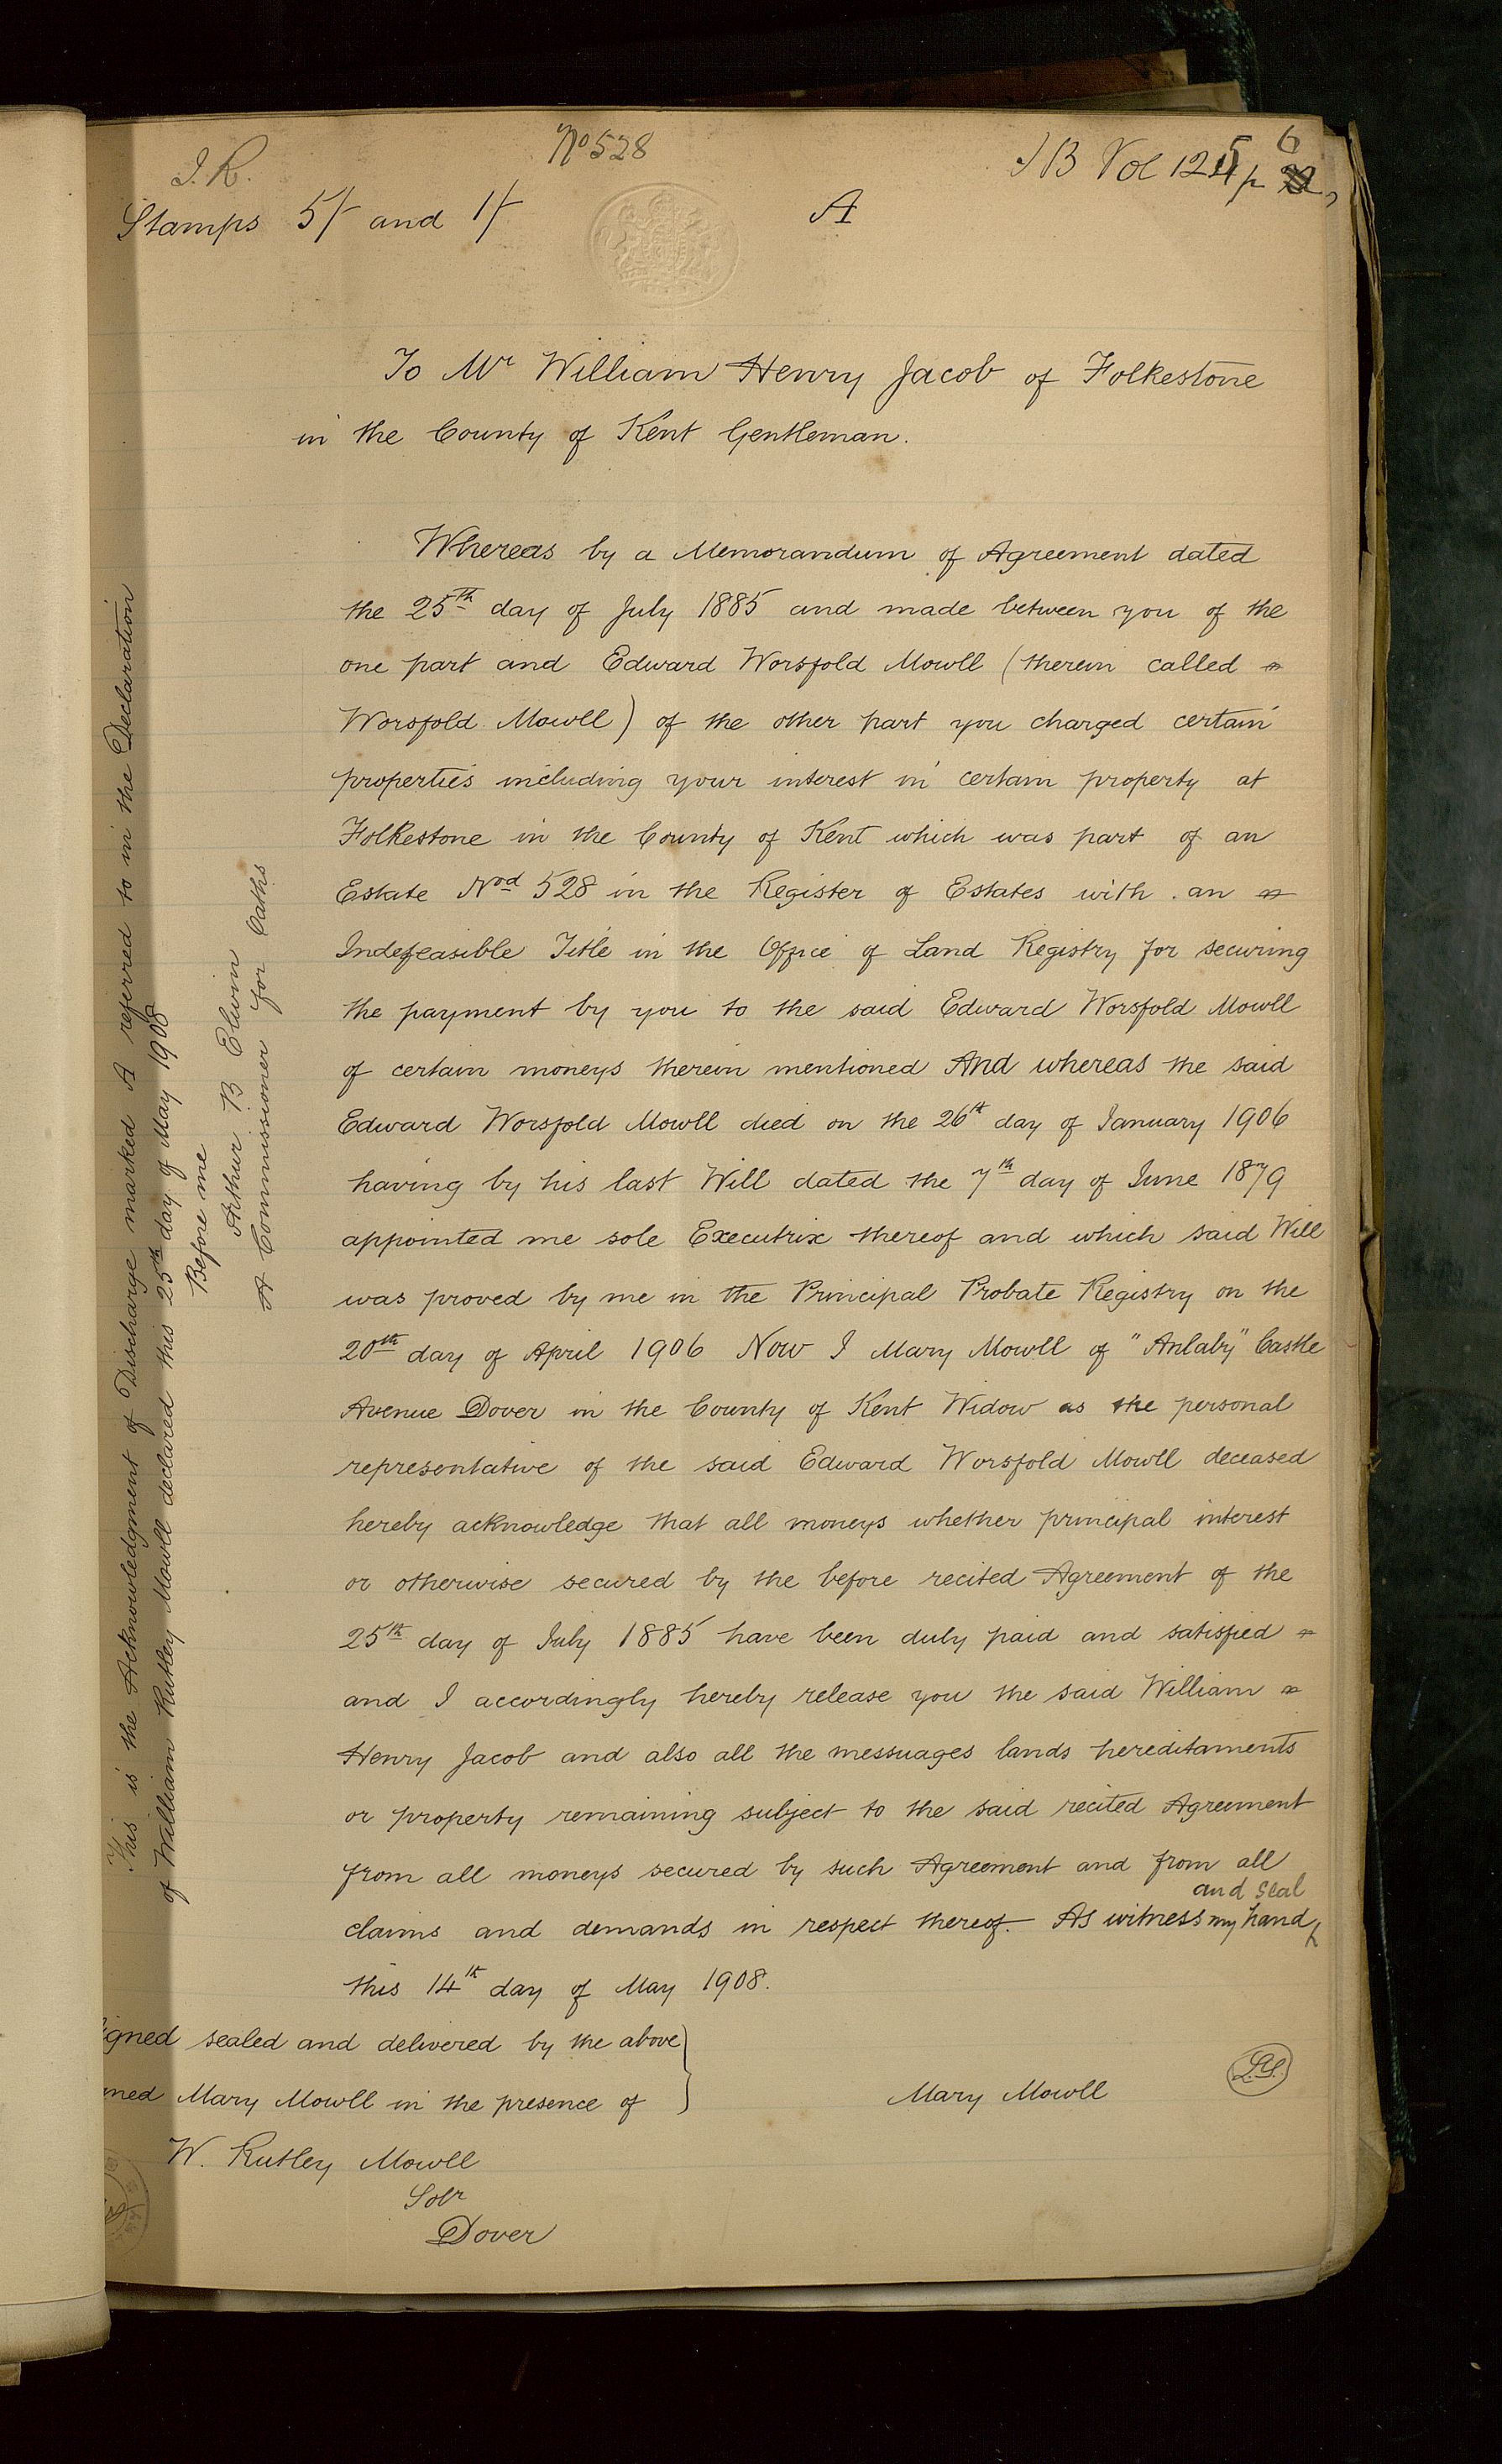 I.R.
No 528
I B Vol 125 p 6
Stamps 5/- and 1/-
A
To Mr William Henry Jacob of Folkestone
in the County of Kent Gentleman.
Whereas by a Memorandum of Agreement dated
the 25th day of July 1885 and made between you of the
one part and Edward Worsfold Mowll (therein called
Worsfold Mowll) of the other part you charged certain
properties including your interest in certain property at
Folkestone in the County of Kent which was part of an
Estate Nod 528 in the Register of Estates with an
Indefeasible Title in the Office of Land Registry for securing
the payment by you to the said Edward Worsfold Mowll
of certain moneys therein mentioned And whereas the said
Edward Worsfold Mowll died on the 26th day of January 1906
having by his last Will dated the 7th day of June 1879
appointed me sole Executrix thereof and which said Will
was proved by me in the Principal Probate Registry on the
20th day of April 1906 Now I Mary Mowll of "Anlaby" Castle
Avenue Dover in the County of Kent Widow as the personal
representative of the said Edward Worsfold Mowll deceased
hereby acknowledge that all moneys whether principal interest
or otherwise secured by the before recited Agreement of the
25th day of July 1885 have been duly paid and satisfied
and I accordingly hereby release you the said William
Henry Jacob and also all the messuages lands hereditaments
or property remaining subject to the said recited Agreement
from all moneys secured by such Agreement and from all
claims and demands in respect thereof. As witness my hand and seal
this 14th day of May 1908.
igned sealed and delivered by the above
med Mary Mowll in the presence of
Mary Mowll
L.S.
W. Rutley Mowll
Solr
Dover
This is the Acknowledgment of Discharge marked A referred to in the Declaration
of William Rutley Mowll declared this 25th day of May 1908
Before me
Arthur B Elwin
A Commissioner for Oaths